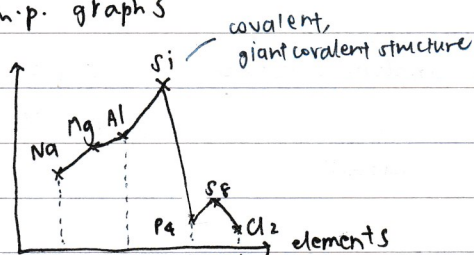 m.p. graphs
covalent,
giant covalent structure
Si
Mg Al
Na
S8
P4
Cl2
elements